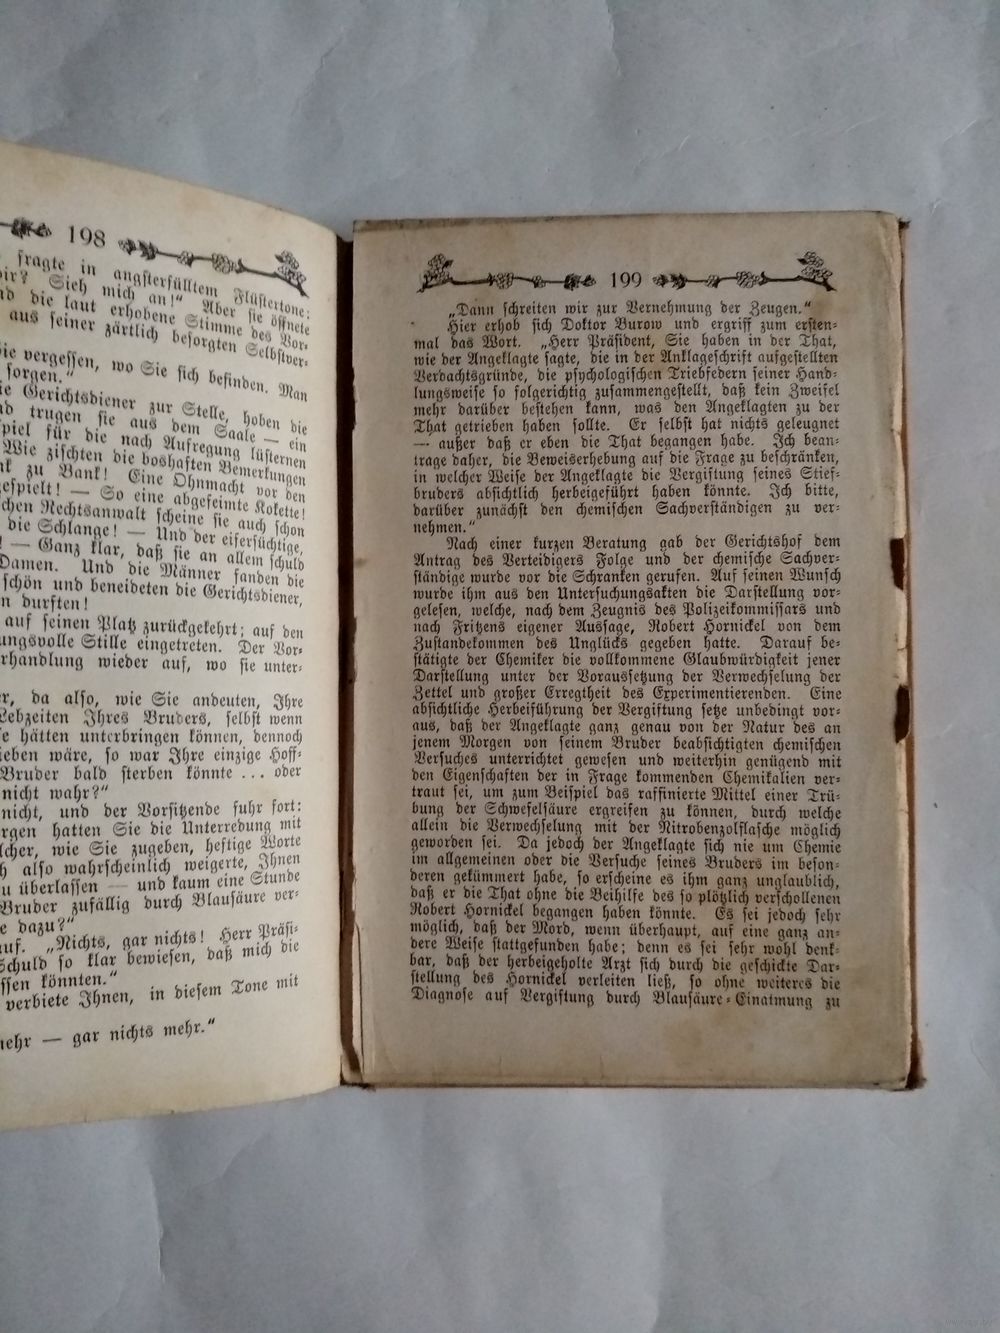 198
fragte in angsterfülltem Flüstertone:
Sieh mich an!“ Aber sie öffnete
die laut erhobene Stimme des Vor-
aus seiner zärtlich besorgten Selbstver-
vergessen, wo Sie sich befinden. Man
sorgen.“
Gerichtsdiener zur Stelle, hoben die
trugen sie aus dem Saale — ein
für die nach Aufregung lüsternen
Wie zischten die boshaften Bemerkungen
zu Bank! Eine Ohnmacht vor den
gespielt! — So eine abgefeimte Kokette!
Rechtsanwalt scheine sie auch schon
die Schlange! — Und der eifersüchtige,
! — Ganz klar, daß sie an allem schuld
Damen. Und die Männer fanden die
schön und beneideten die Gerichtsdiener,
durften!
auf seinen Platz zurückgekehrt; auf den
Stille eingetreten. Der Vor-
wieder auf, wo sie unter-
da also, wie Sie andeuten, Ihre
Lebzeiten Ihres Bruders, selbst wenn
hätten unterbringen können, dennoch
wäre, so war Ihre einzige Hoff-
Bruder bald sterben könnte ... oder
nicht wahr?“
nicht, und der Vorsitzende fuhr fort:
hatten Sie die Unterredung mit
wie Sie zugeben, heftige Worte
also wahrscheinlich weigerte, Ihnen
überlassen — und kaum eine Stunde
Bruder zufällig durch Blausäure ver-
dazu?“
auf. „Nichts, gar nichts! Herr Präsi-
Schuld so klar bewiesen, daß mich die
könnten.“
verbiete Ihnen, in diesem Tone mit
mehr — gar nichts mehr.“
199
„Dann schreiten wir zur Vernehmung der Zeugen.“
Hier erhob sich Doktor Burow und ergriff zum ersten-
mal das Wort. „Herr Präsident, Sie haben in der That,
wie der Angeklagte sagte, die in der Anklageschrift aufgestellten
Verdachtsgründe, die psychologischen Triebfedern seiner Hand-
lungsweise so folgerichtig zusammengestellt, daß kein Zweifel
mehr darüber bestehen kann, was den Angeklagten zu der
That getrieben haben sollte. Er selbst hat nichts geleugnet
— außer daß er eben die That begangen habe. Ich bean-
trage daher, die Beweiserhebung auf die Frage zu beschränken,
in welcher Weise der Angeklagte die Vergiftung seines Stief-
bruders absichtlich herbeigeführt haben könnte. Ich bitte,
darüber zunächst den chemischen Sachverständigen zu ver-
nehmen.“
Nach einer kurzen Beratung gab der Gerichtshof dem
Antrag des Verteidigers Folge und der chemische Sachver-
ständige wurde vor die Schranken gerufen. Auf seinen Wunsch
wurde ihm aus den Untersuchungsakten die Darstellung vor-
gelesen, welche, nach dem Zeugnis des Polizeikommissars und
nach Fritzens eigener Aussage, Robert Hornickel von dem
Zustandekommen des Unglücks gegeben hatte. Darauf be-
stätigte der Chemiker die vollkommene Glaubwürdigkeit jener
Darstellung unter der Voraussetzung der Verwechselung der
Zettel und großer Erregtheit des Experimentierenden. Eine
absichtliche Herbeiführung der Vergiftung setze unbedingt vor-
aus, daß der Angeklagte ganz genau von der Natur des an
jenem Morgen von seinem Bruder beabsichtigten chemischen
Versuches unterrichtet gewesen und weiterhin genügend mit
den Eigenschaften der in Frage kommenden Chemikalien ver-
traut sei, um zum Beispiel das raffinierte Mittel einer Trü-
bung der Schwefelsäure ergreifen zu können, durch welche
allein die Verwechselung mit der Nitrobenzolflasche möglich
geworden sei. Da jedoch der Angeklagte sich nie um Chemie
im allgemeinen oder die Versuche seines Bruders im beson-
deren gekümmert habe, so erscheine es ihm ganz unglaublich,
daß er die That ohne die Beihilfe des so plötzlich verschollenen
Robert Hornickel begangen haben könnte. Es sei jedoch sehr
möglich, daß der Mord, wenn überhaupt, auf eine ganz an-
dere Weise stattgefunden habe; denn es sei sehr wohl denk-
bar, daß der herbeigeholte Arzt sich durch die geschickte Dar-
stellung des Hornickel verleiten ließ, so ohne weiteres die
Diagnose auf Vergiftung durch Blausäure-Einatmung zu